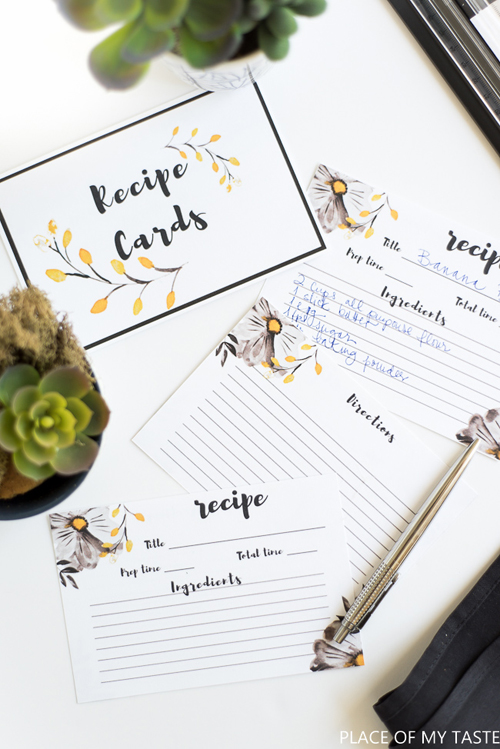 Recipe
Cards
recip
Title Banana
Prep time
Total time
Ingredients
2 cups all purpose flour
1 stick butter
1 egg
sugar
baking powder
Directions
recipe
Title
Prep time Total time
Ingredients
PLACE OF MY TASTE